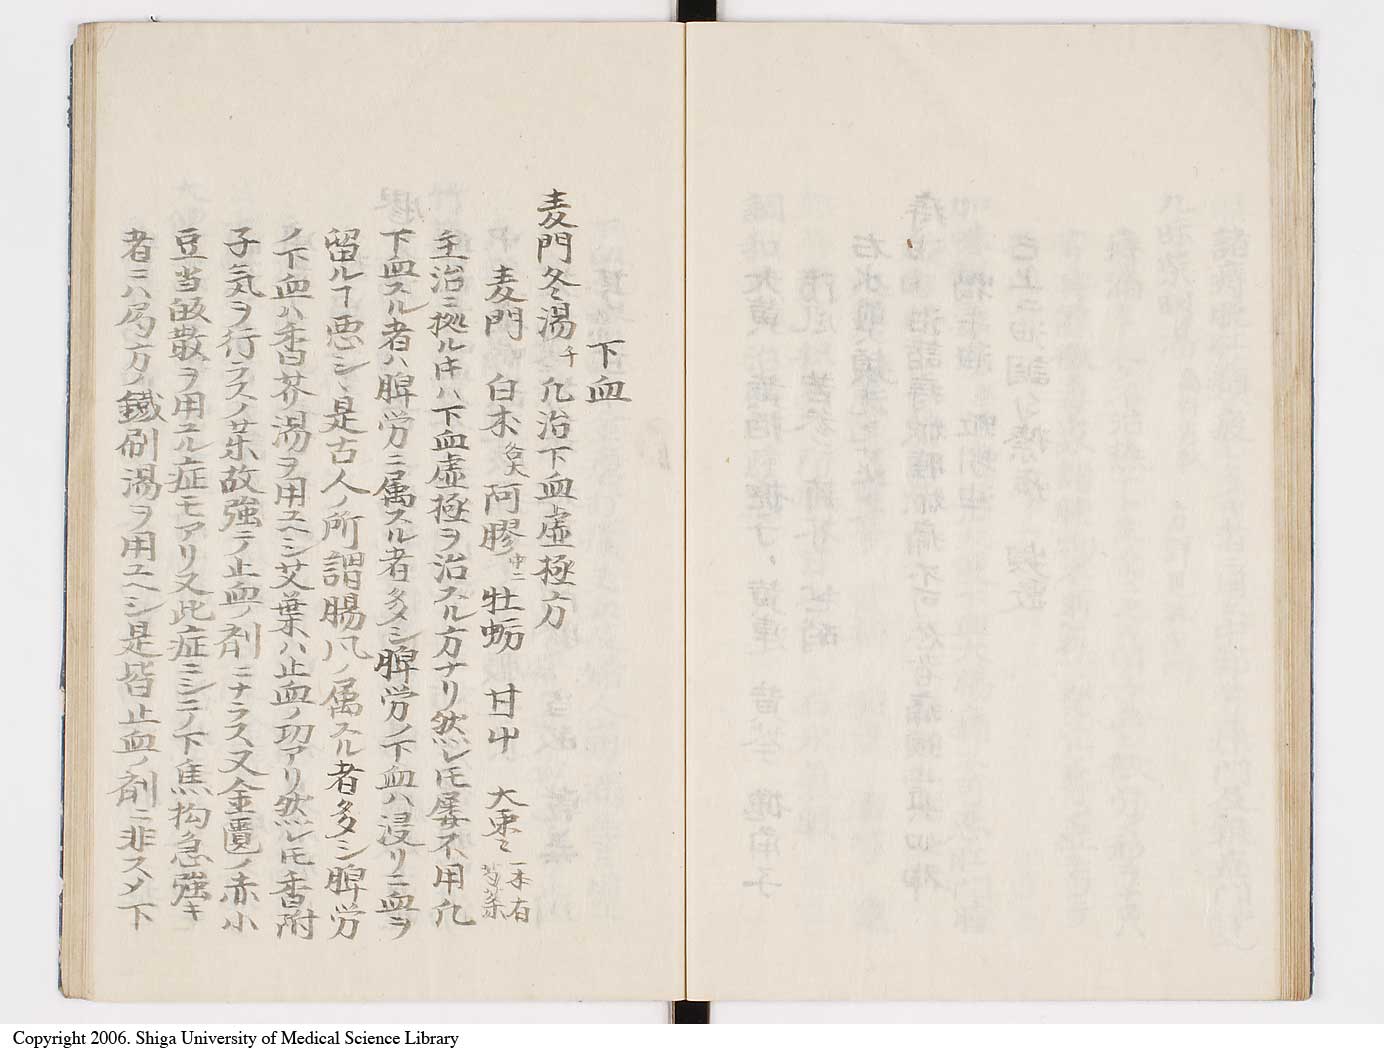 下血
麦門冬湯 千 凡治下血虚極方
麦門 白朮 各大 阿膠 中二 牡蛎 甘中 大棗 一本有芩
主治ニ拠ル𪜈ハ下血虚極ヲ治スル方ナリ然レ𪜈屡不用凡
下血スル者ハ脾労ニ属スル者多シ脾労ノ下血ハ浸リニ血ヲ
留ルヿ悪シヽ是古人ノ所謂腸凬ノ属スル者多シ脾労
ノ下血ハ香芥湯ヲ用ユヘシ艾葉ハ止血ノ功アリ然レ𪜈香附
子気ヲ行ラスノ薬故強テ止血ノ剤ニナラス又金匱ノ赤小
豆当皈散ヲ用ユル症モアリ又此症ニシテ下焦拘急強キ
者ニハ局方ノ鐵刷湯ヲ用ユヘシ是皆止血ノ剤ニ非ス〆下
Copyright 2006. Shiga University of Medical Science Library